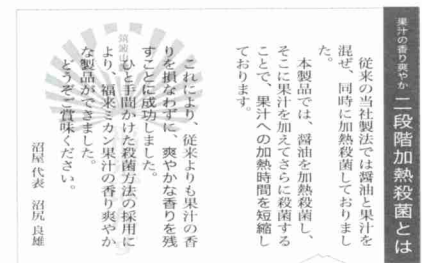 果汁の香り爽やか 二段階加熱殺菌とは
従来の当社製法では醤油と果汁を
混ぜ、同時に加熱殺菌しておりまし
た。
本製品では、醤油を加熱殺菌し、
そこに果汁を加えてさらに殺菌する
ことで、果汁への加熱時間を短縮し
ております。
これにより、従来よりも果汁の香
りを損なわずに、爽やかな香りを残
すことに成功しました。
ひと手間かけた殺菌方法の採用に
より、福来ミカン果汁の香り爽やか
な製品ができました。
どうぞご賞味ください。
沼屋 代表 沼尻 良雄
筑波山